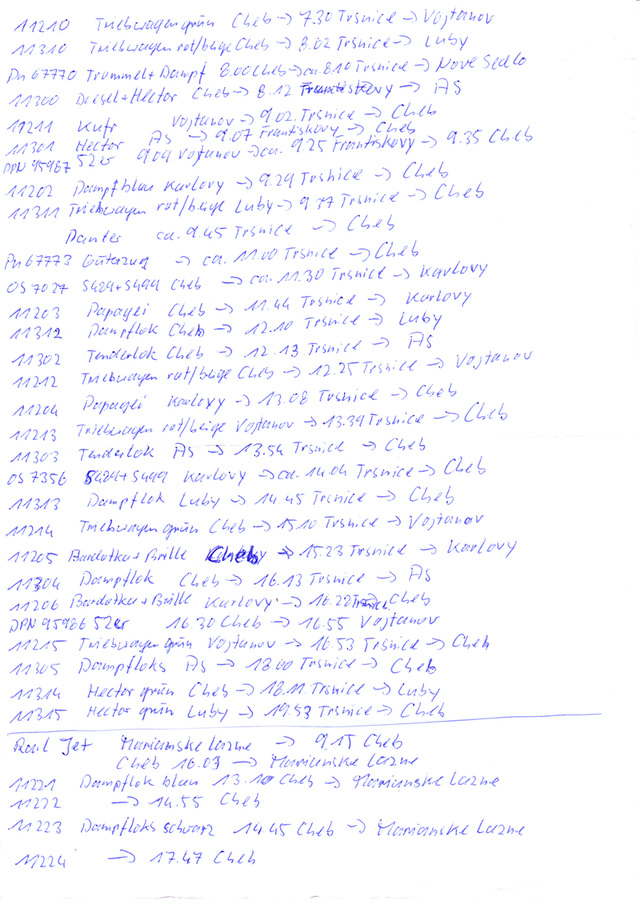 11210 Triebwagen grün Cheb → 7.30 Tršnice → Vojtanov
11310 Triebwagen rot/beige Cheb → 8.02 Tršnice → Luby
Pn 67770 Trommel + Dampf 8.00 Cheb → ca. 8.10 Tršnice → Nove Sedlo
11300 Diesel + Hector Cheb → 8.12 Frantiskovy → AS
11211 Kufr Vojtanov → 9.02 Tršnice → Cheb
11301 Hector AS → 9.07 Frantiskovy → Cheb
DPN 95967 52er 9.09 Vojtanov → ca. 9.25 Frantiskovy → 9.35 Cheb
11202 Dampf blau Karlovy → 9.29 Tršnice → Cheb
11311 Triebwagen rot/beige Luby → 9.37 Tršnice → Cheb
Panter ca. 9.45 Tršnice → Cheb
Pn 67773 Güterzug → ca. 11.00 Tršnice → Cheb
OS 7027 S424 + S499 Cheb → ca. 11.30 Tršnice → Karlovy
11203 Papagei Cheb → 11.44 Tršnice → Karlovy
11312 Dampflok Cheb → 12.10 Tršnice → Luby
11302 Tenderlok Cheb → 12.13 Tršnice → AS
11212 Triebwagen rot/beige Cheb → 12.25 Tršnice → Vojtanov
11204 Papagei Karlovy → 13.08 Tršnice → Cheb
11213 Triebwagen rot/beige Vojtanov → 13.39 Tršnice → Cheb
11303 Tenderlok AS → 13.54 Tršnice → Cheb
OS 7356 S424 + S499 Karlovy → ca. 14.04 Tršnice → Cheb
11313 Dampflok Luby → 14.45 Tršnice → Cheb
11214 Triebwagen grün Cheb → 15.10 Tršnice → Vojtanov
11205 Bardotka + Brille Cheb → 15.23 Tršnice → Karlovy
11304 Dampflok Cheb → 16.13 Tršnice → AS
11206 Bardotka + Brille Karlovy → 16.22 Tršnice Cheb
DPN 95966 52er 16.30 Cheb → 16.55 Vojtanov
11215 Triebwagen grün Vojtanov → 16.53 Tršnice → Cheb
11305 Dampfloks AS → 18.00 Tršnice → Cheb
11314 Hector grün Cheb → 18.11 Tršnice → Luby
11315 Hector grün Luby → 19.53 Tršnice → Cheb
Rail Jet Marianske Lazne → 9.15 Cheb
Cheb 16.03 → Marianske Lazne
11221 Dampflok blau 13.10 Cheb → Marianske Lazne
11222 → 14.55 Cheb
11223 Dampfloks schwarz 14.45 Cheb → Marianske Lazne
11224 → 17.47 Cheb